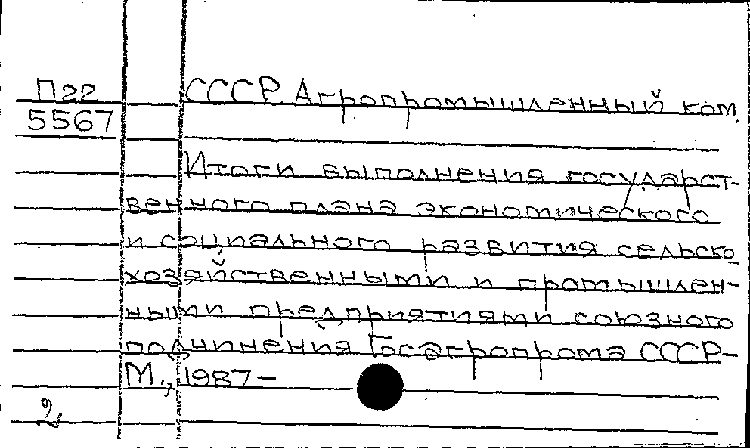 П22 СССР. Агропромышленный ком.
5567
Итоги выполнения государст-
венного плана экономического
и социального развития сельско
хозяйственными и промышлен-
ными предприятиями союзного
подчинения Госагропрома СССР-
М., 1987-